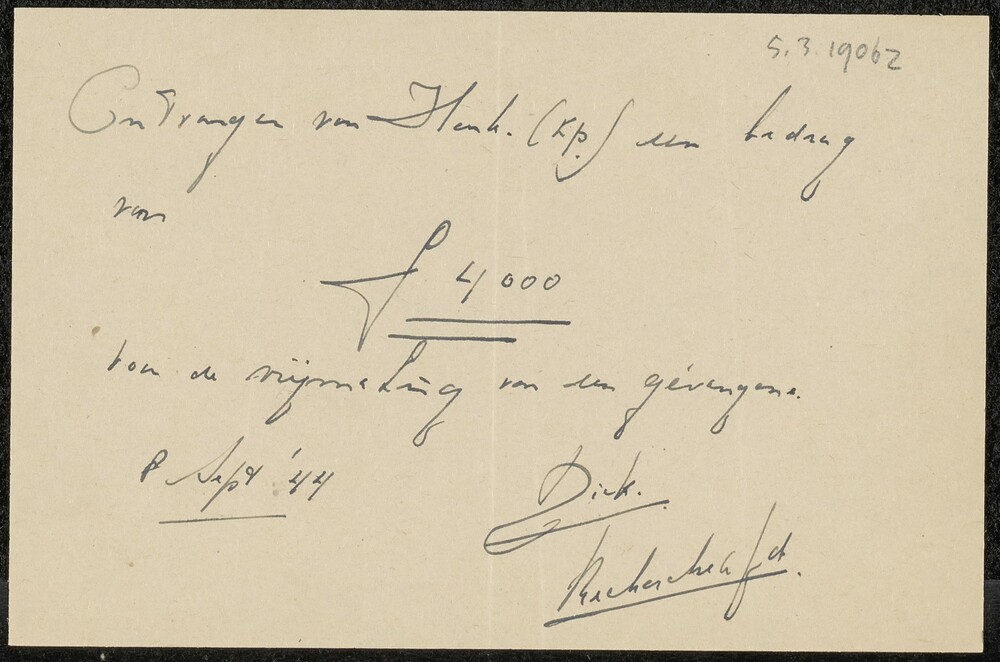 5.3.19062
Ontvangen van Henk. (Kp) een bedrag
van
f 4000
voor de vrijmaking van een gevangene.
8 Sept '44
Dick.
Recherche afd.